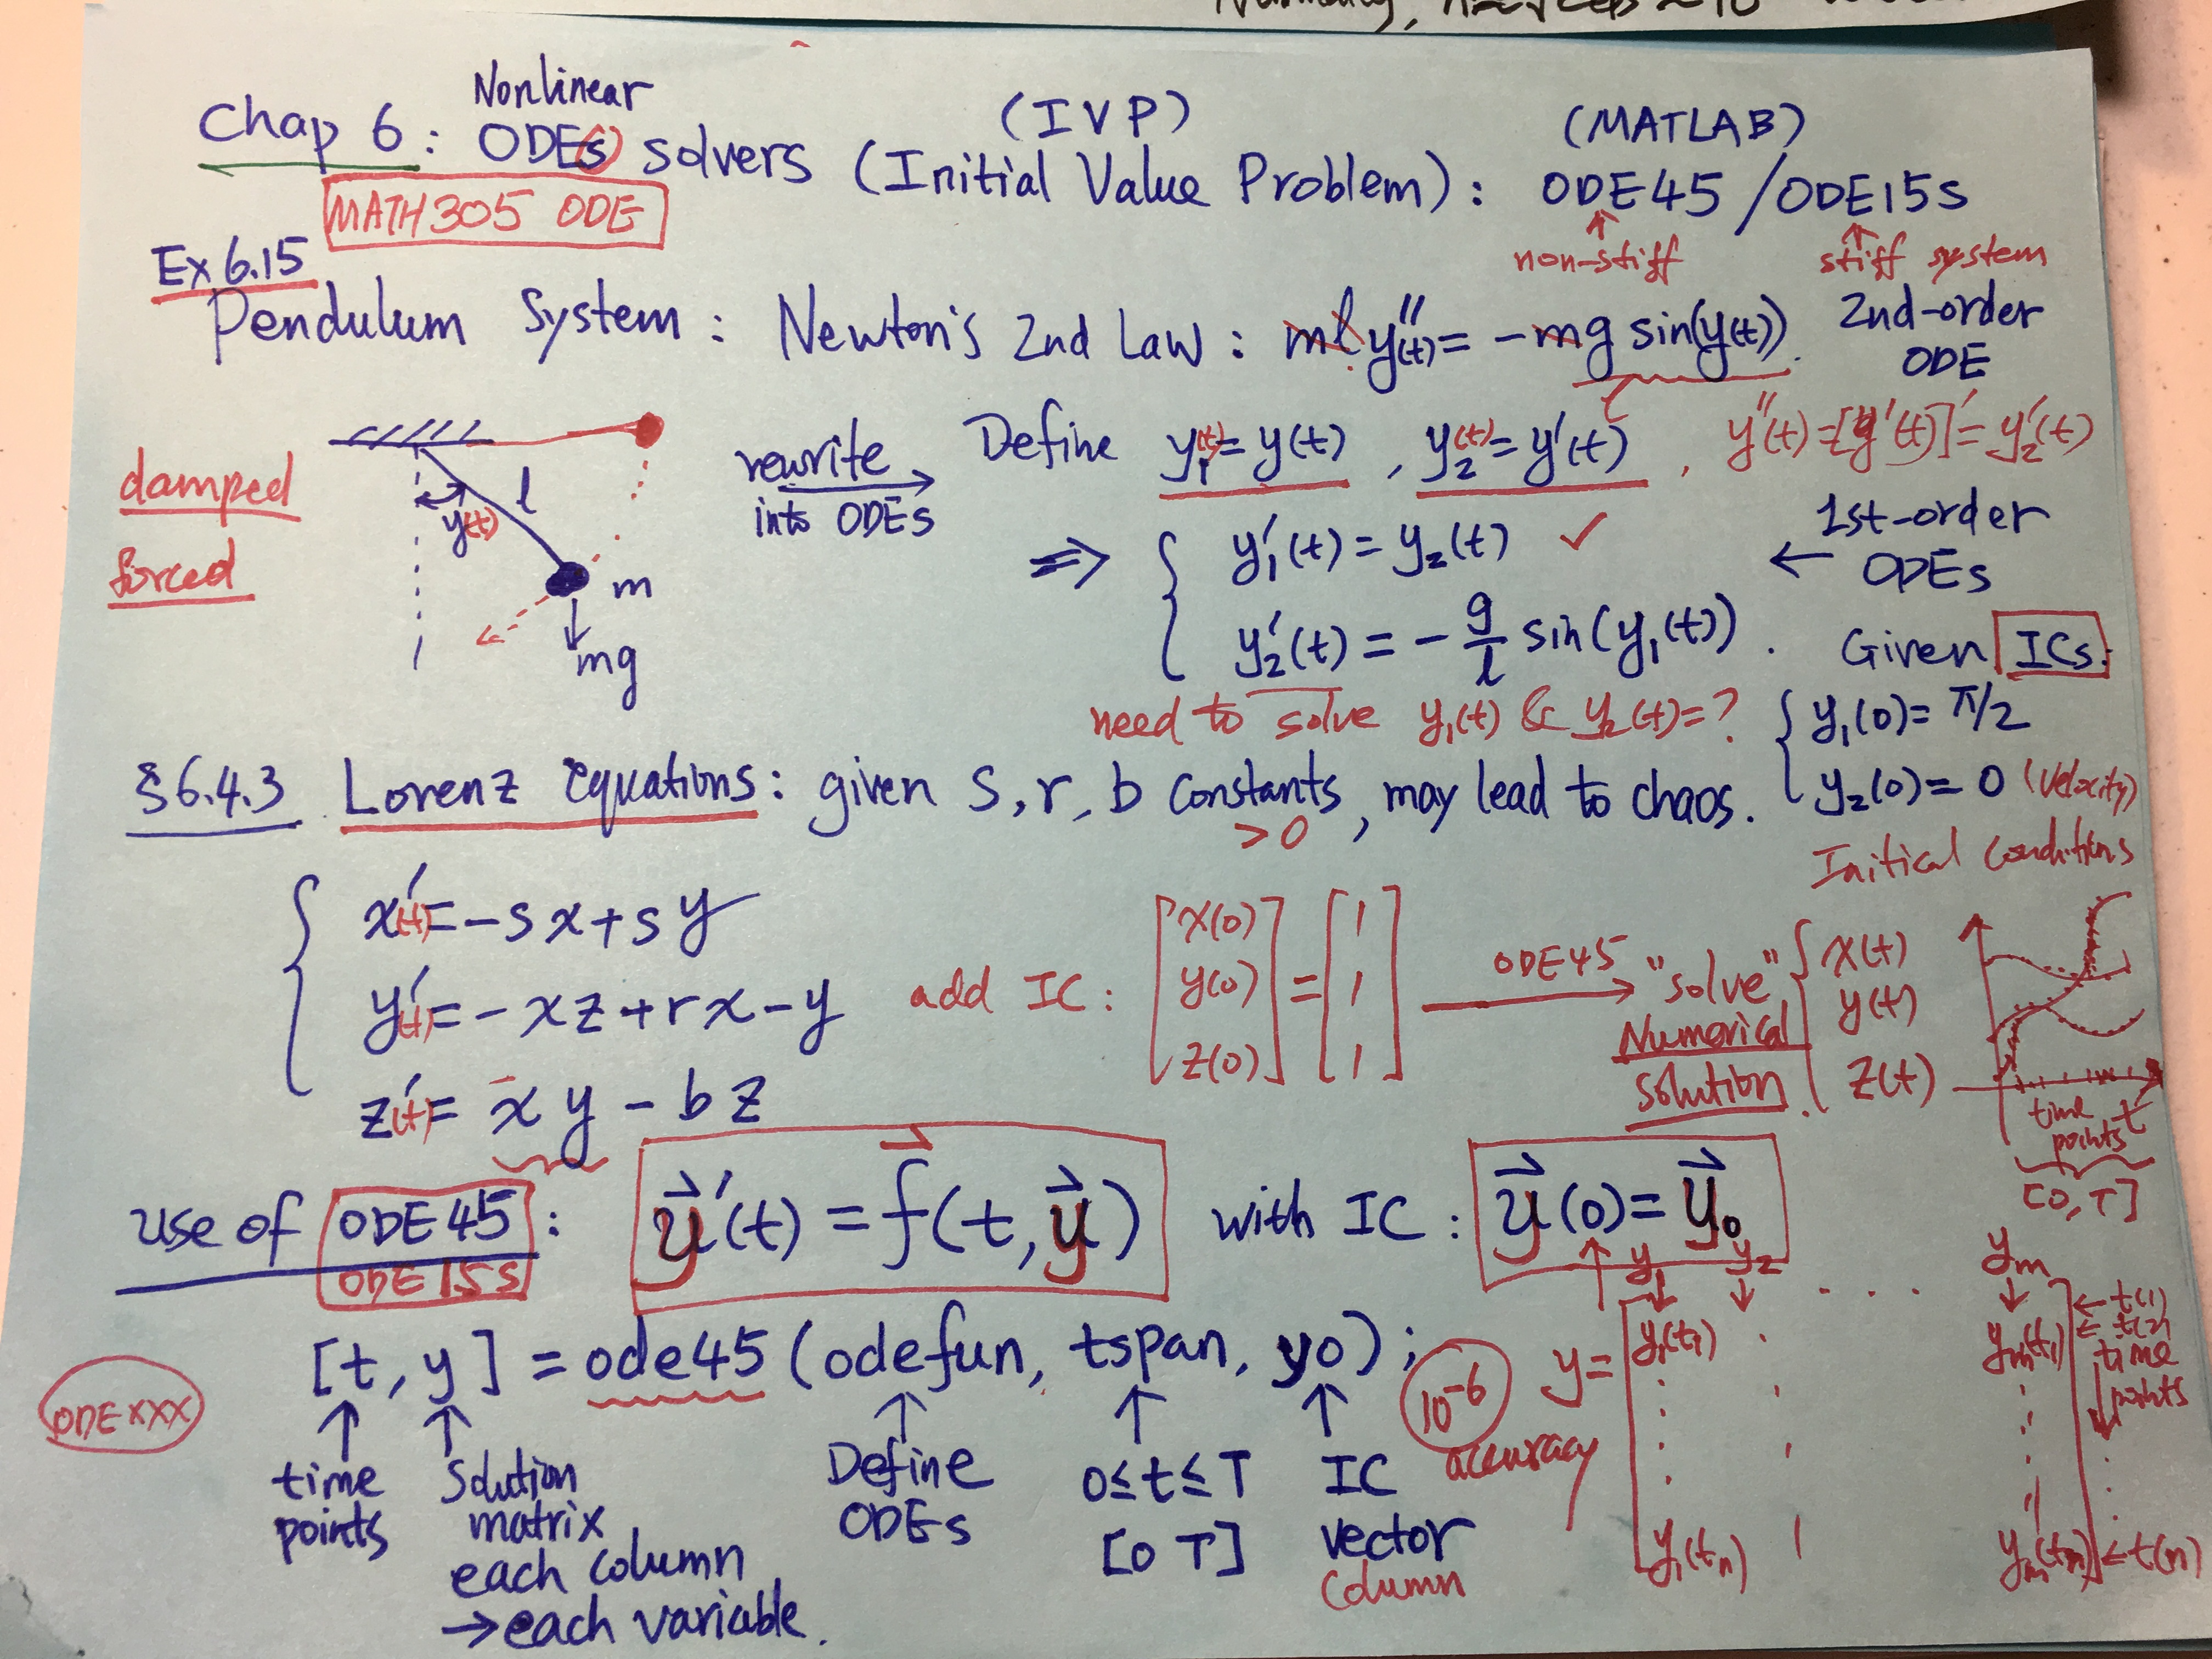 Nonlinear
Chap 6: ODEs solvers (Initial Value Problem): ODE45 / ODE15s
(IVP)
(MATLAB)
MATH305 ODE
non-stiff
stiff system
Ex 6.15
Pendulum System: Newton's 2nd Law: ml y''(t) = -mg sin(y(t)).
2nd-order
ODE
damped
forced
l
y(t)
m
mg
rewrite
into ODEs
Define y₁(t) = y(t), y₂(t) = y'(t), y''(t) = [y'(t)]' = y₂'(t)
⇒ { y₁'(t) = y₂(t) ✓
y₂'(t) = - g/l sin(y₁(t)).
← 1st-order
ODEs
Given ICs:
need to solve y₁(t) & y₂(t) = ?
{ y₁(0) = π/2
y₂(0) = 0 (velocity)
Initical Conditions
§6.4.3 Lorenz Equations: given s, r, b constants, may lead to chaos.
>0
{ x'(t) = -s x + s y
y'(t) = - x z + r x - y
z'(t) = x y - b z
add IC: [x(0) y(0) z(0)] = [1 1 1]
ODE45
→ "solve"
Numerical
solution.
{ x(t)
y(t)
z(t)
time t
points
[0, T]
use of ODE45:
ODE15s
y'(t) = f(t, y) with IC: y(0) = y₀
[t, y] = ode45 (odefun, tspan, y0);
ODExxx
time
points
Solution
matrix
each column
→ each variable.
Define
ODEs
0≤t≤T
[0 T]
IC
vector
column
10⁻⁶
accuracy
y₁ y₂ . . . yₘ
y = [ y₁(t₁) . yₘ(t₁) ]
← t(1)
← t(2)
time
points
y₁(tₙ) yₘ(tₙ) ← t(n)